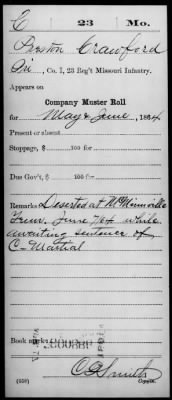 C 23 Mo.
Preston Crawford
Pri, Co. I, 23 Reg't Missouri Infantry.
Appears on
Company Muster Roll
for May & June, 1864
Present or absent
Stoppage, $ 100 for
Due Gov't, $ 100 for
Remarks: Deserted at McMinnville
Tenn. June 7/64 while
awaiting sentence of
C-Martial
Book mark:
(359) Copyist.